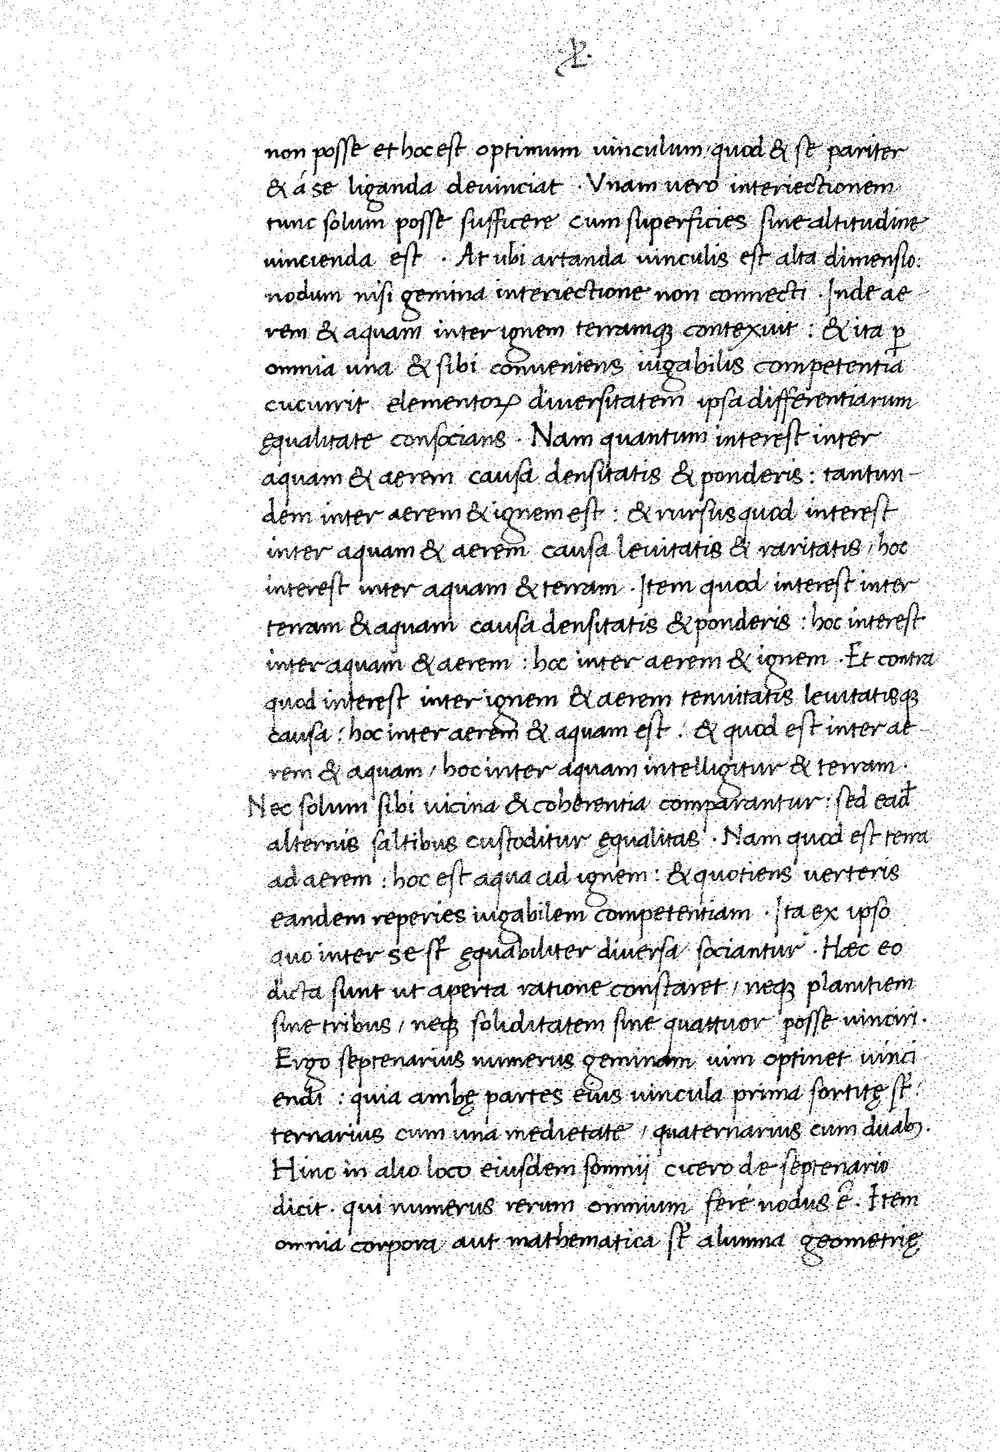 non posse et hoc est optimum vinculum, quod & se pariter
& á se liganda devinciat . Vnam vero interiectionem
tunc solum posse sufficere cum superficies sine altitudine
vincienda est . At ubi artanda vinculis est alta dimensio:
nodum nisi gemina interiectione non connecti . Inde ae
rem & aquam inter ignem terramqꝫ contexuit : & ita ꝑ
omnia una & sibi conveniens iugabilis competentia
cucurrit elementoꝝ diversitatem ipsa differentiarum
ęqualitate consocians . Nam quantum interest inter
aquam & aerem causa densitatis & ponderis : tantun-
dem inter aerem & ignem est : & rursus quod interest
inter aquam & aerem causa levitatis & raritatis / hoc
interest inter aquam & terram . Item quod interest inter
terram & aquam causa densitatis & ponderis : hoc interest
inter aquam & aerem : hoc inter aerem & ignem . Et contra
quod interest inter ignem & aerem tenuitatis levitatisqꝫ
causa : hoc inter aerem & aquam est : & quod est inter ae-
rem & aquam / hoc inter aquam intelligitur & terram .
Nec solum sibi vicina & coherentia comparantur : sed ead̄
alternis saltibus custoditur ęqualitas . Nam quod est terra
ad aerem : hoc est aqua ad ignem : & quotiens verteris
eandem reperies iugabilem competentiam . Ita ex ipso
quo inter se st̄ ęquabiliter diversa sociantur . Hæc eo
dicta sunt ut aperta ratione constaret / neqꝫ planitiem
sine tribus / neqꝫ soliditatem sine quattuor posse vinciri .
Ergo septenarius numerus geminam vim optinet vinci
endi : quia ambę partes eius vincula prima sortitę st̄ :
ternarius cum una medietate / quaternarius cum duabꝫ.
Hinc in alio loco eiusdem somnij cicero de septenario
dicit . qui numerus rerum omnium feré nodus ē . Item
omnia corpora aut mathematica st̄ alumna geometrię